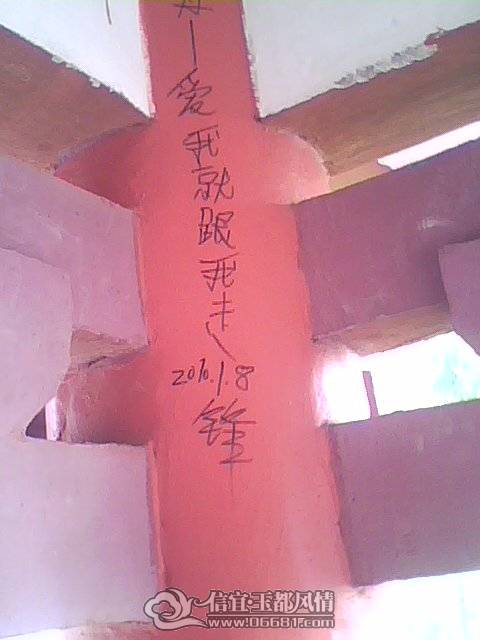 爱我就跟我走
2010.1.8
锋
信宜·玉都风情
www.06681.com